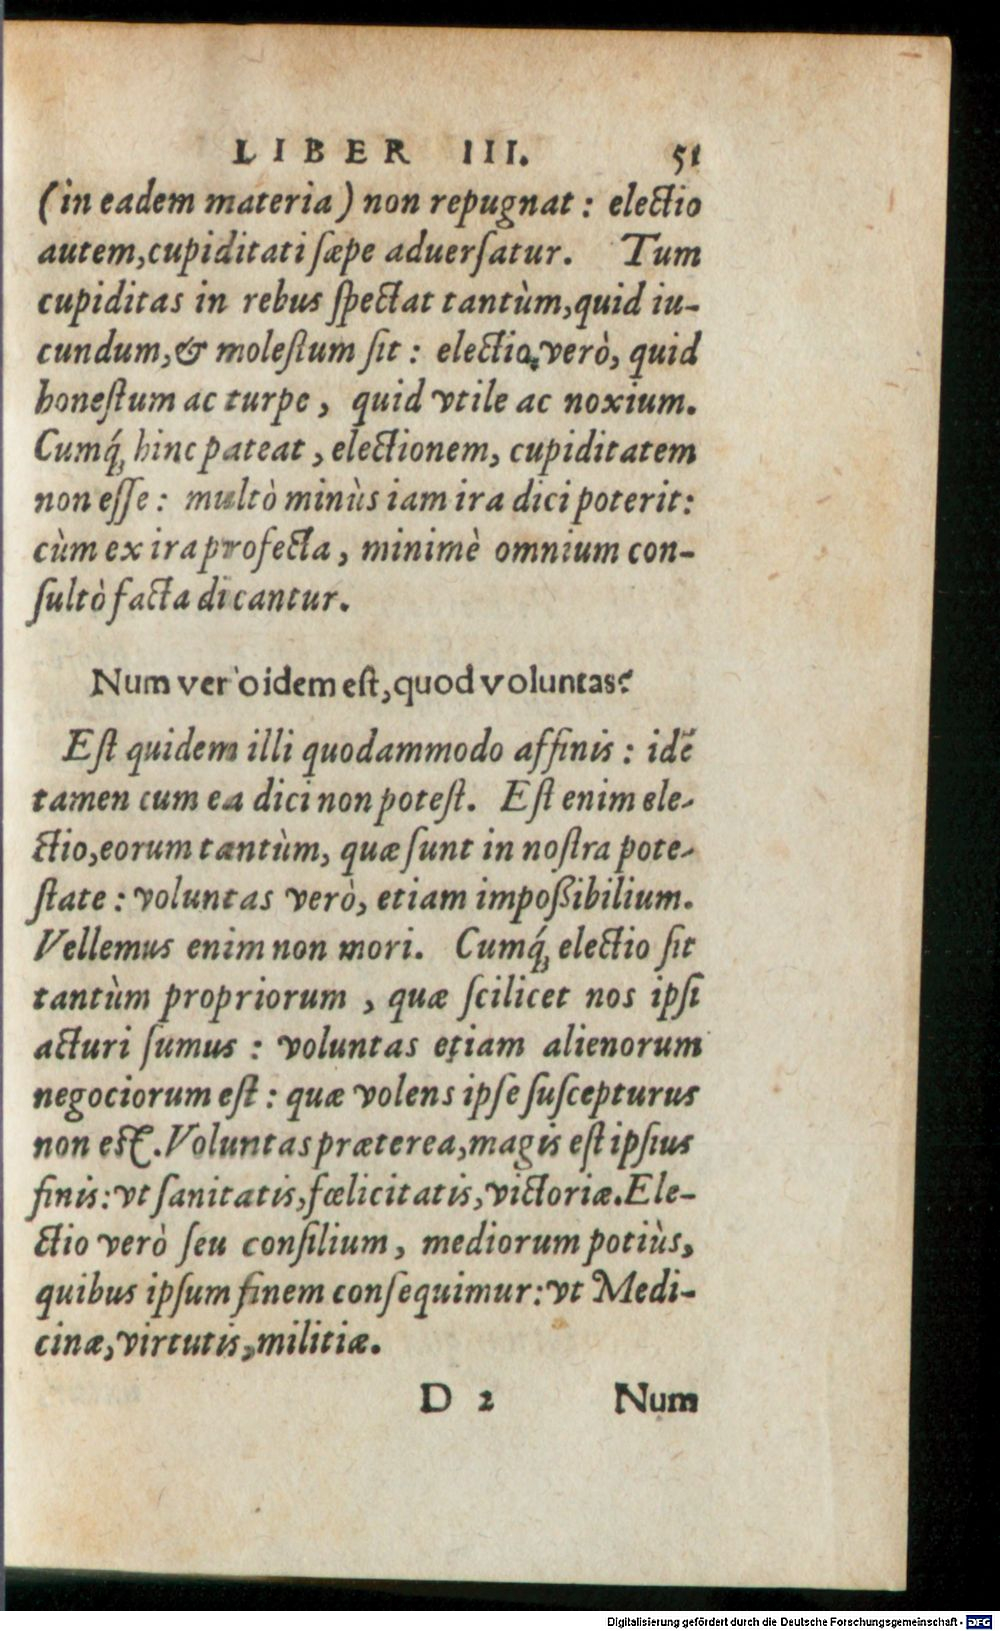 LIBER III. 51
(in eadem materia) non repugnat: electio
autem, cupiditati sæpe aduersatur. Tum
cupiditas in rebus spectat tantùm, quid iu-
cundum, & molestum sit: electio, verò, quid
honestum ac turpe, quid vtile ac noxium.
Cumq́; hinc pateat, electionem, cupiditatem
non esse: multò minùs iam ira dici poterit:
cùm ex ira profecta, minimè omnium con-
sultò facta dicantur.
Num verò idem est, quod voluntas?
Est quidem illi quodammodo affinis: idē
tamen cum ea dici non potest. Est enim ele-
ctio, eorum tantùm, quæ sunt in nostra pote-
state: voluntas verò, etiam impoßibilium.
Vellemus enim non mori. Cumq́; electio sit
tantùm propriorum, quæ scilicet nos ipsi
acturi sumus: voluntas etiam alienorum
negociorum est: quæ volens ipse suscepturus
non est. Voluntas præterea, magis est ipsius
finis: vt sanitatis, fœlicitatis, victoriæ. Ele-
ctio verò seu consilium, mediorum potiùs,
quibus ipsum finem consequimur: vt Medi-
cinæ, virtutis, militiæ.
D 2 Num
Digitalisierung gefördert durch die Deutsche Forschungsgemeinschaft - DFG